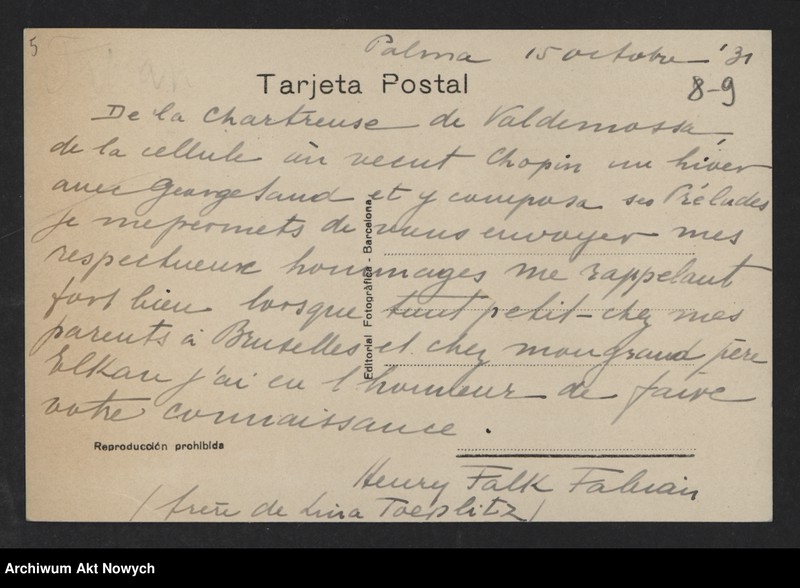 5
Palma 15 octobre '31
Tarjeta Postal
8-9
De la Chartreuse de Valdemossa,
de la cellule où vecut Chopin un hiver
avec George Sand et y composa ses Préludes
je me permets de vous envoyer mes
respectueux hommages me rappelant
fort bien lorsque tout petit - chez mes
parents à Bruxelles et chez mon grand père
Elkan j'ai eu l'honneur de faire
votre connaissance.
Editorial Fotográfica - Barcelona
Reproducción prohibida
Henry Falk Fabian
(frère de Lina Toeplitz)
Archiwum Akt Nowych